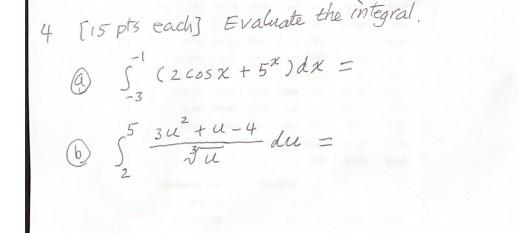 4 [15 pts each] Evaluate the integral.
(a) ∫_{-3}^{-1} (2 cos x + 5^x) dx =
(b) ∫_{2}^{5} \frac{3u^2 + u - 4}{\sqrt[3]{u}} du =